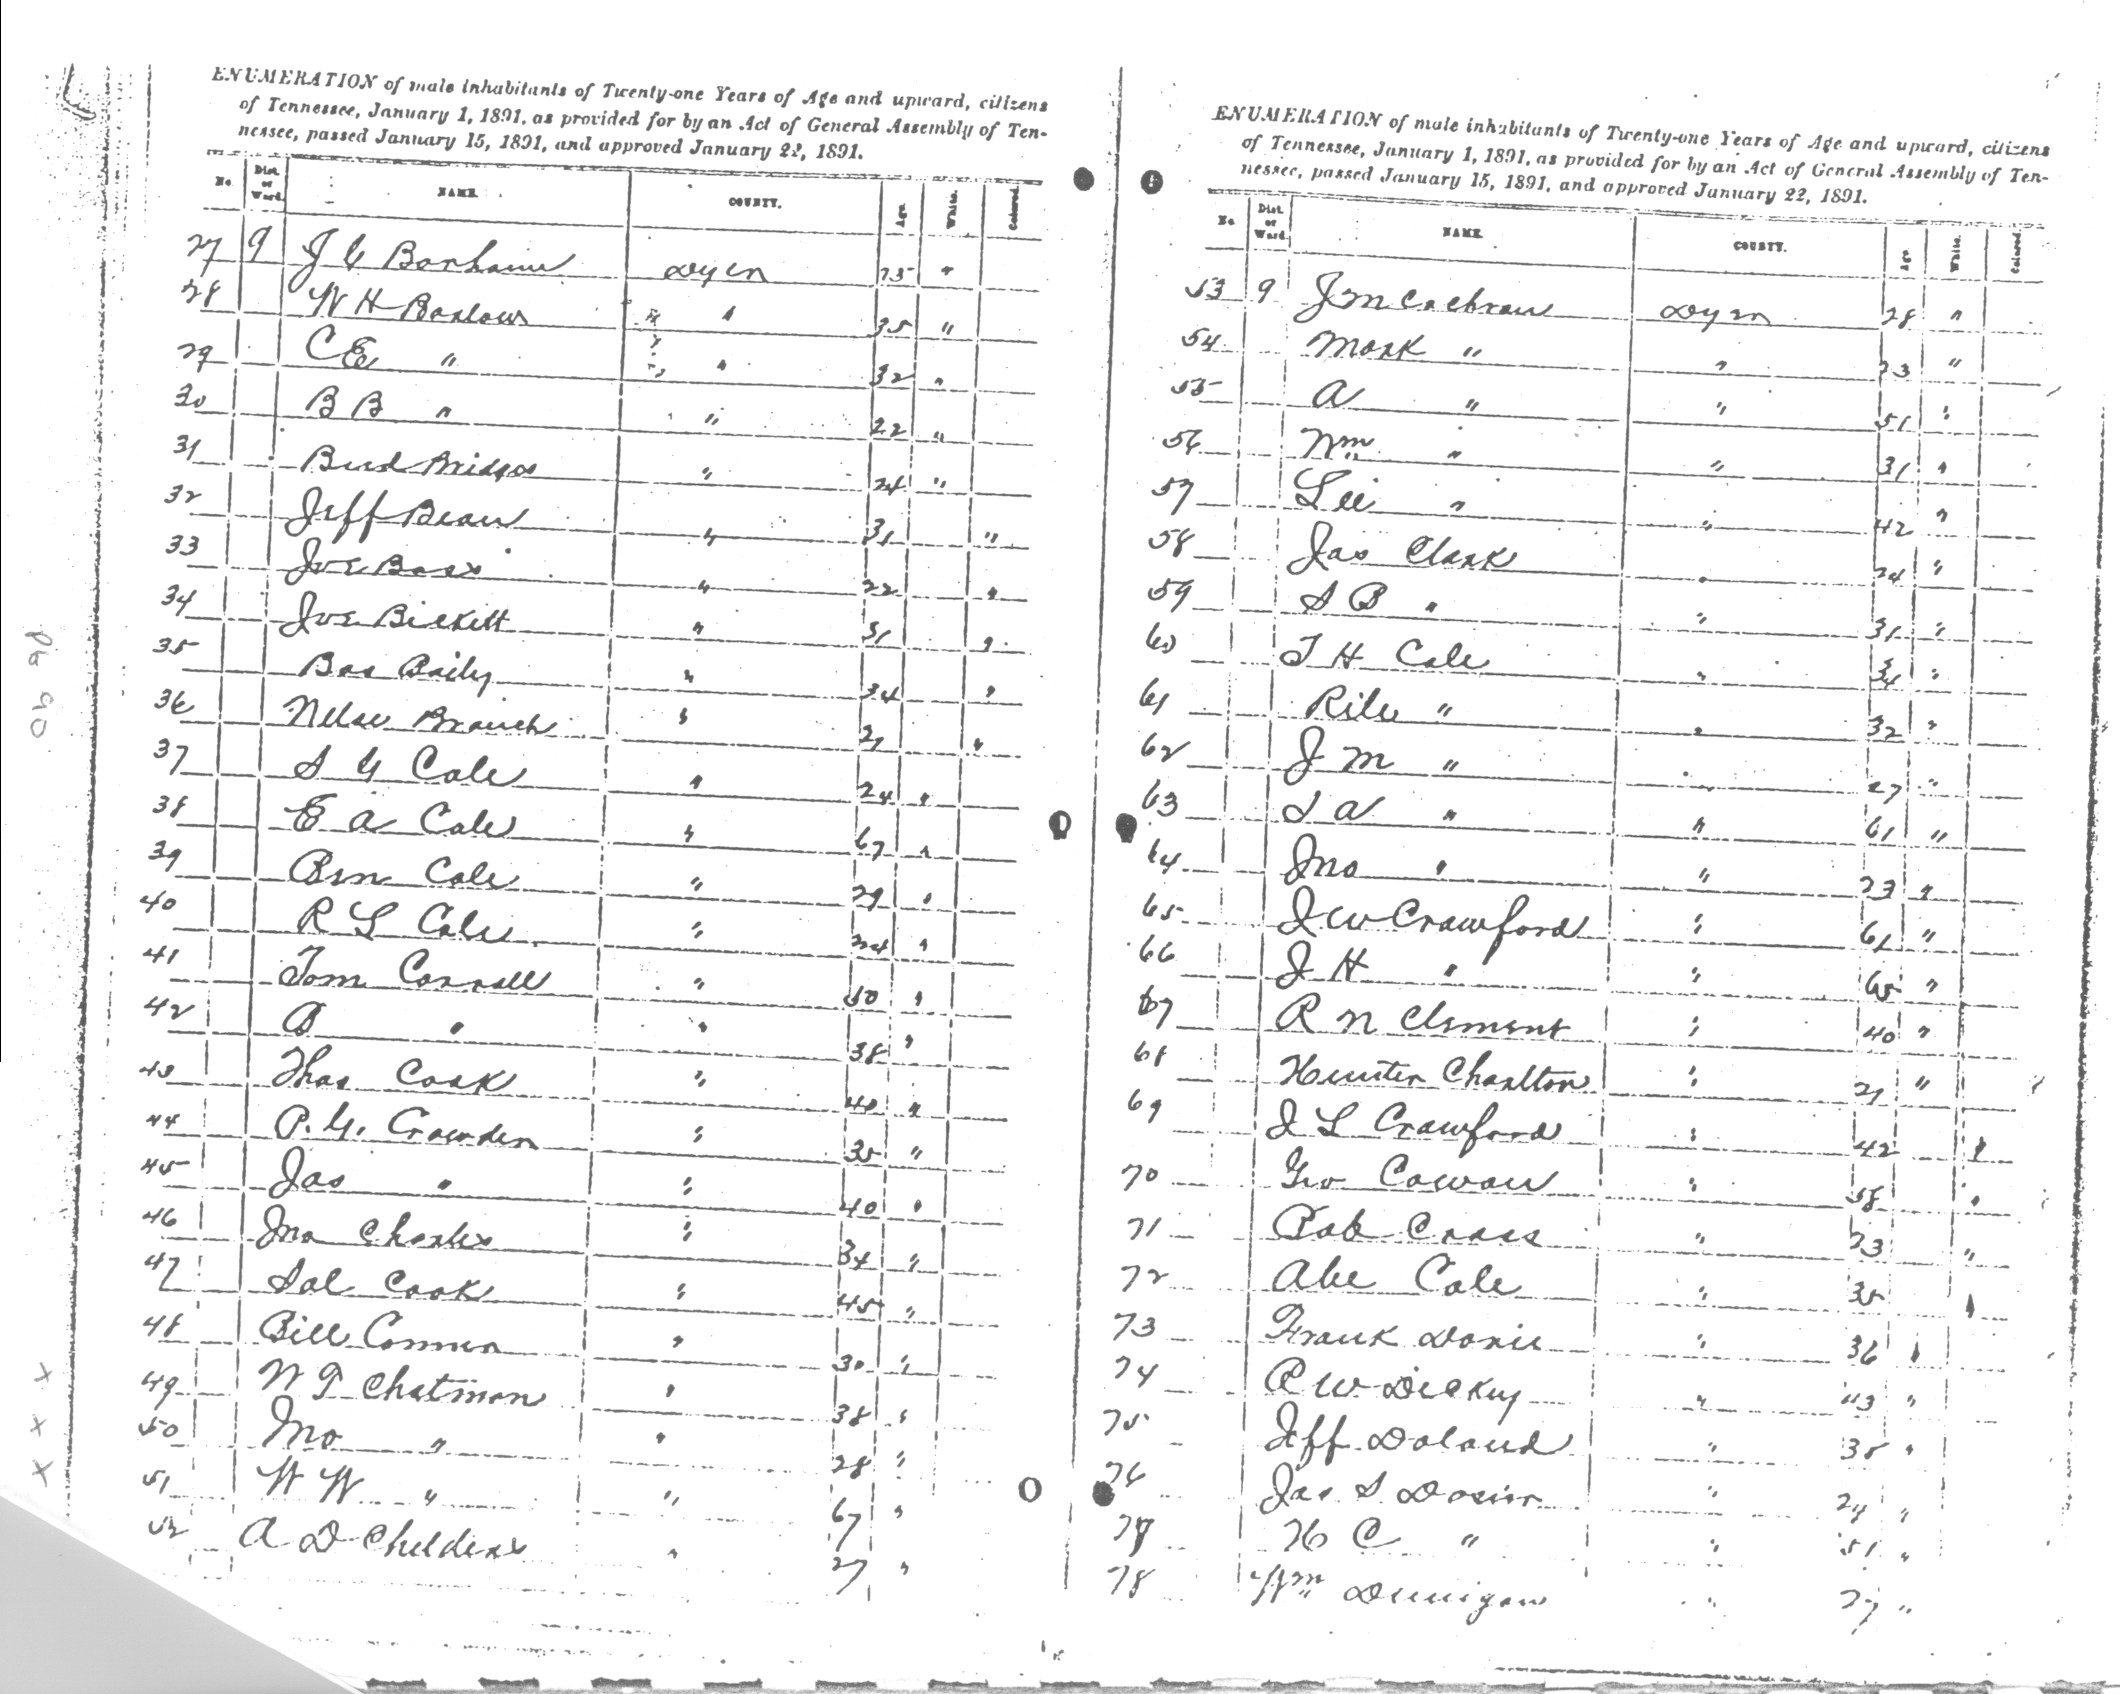 ENUMERATION of male inhabitants of Twenty-one Years of Age and upward, citizens
of Tennessee, January 1, 1891, as provided for by an Act of General Assembly of Ten-
nessee, passed January 15, 1891, and approved January 22, 1891.
No. Dist. or Ward. NAME. COUNTY. Age. White. Colored.
27 9 J G Bonham Dyer 25 "
28 W H Barlow " 35 "
29 C E " " 32 "
30 B B " " 22 "
31 Bud Bridges " 24 "
32 Jeff Bean " 31 "
33 Joe Bass " 22 "
34 Joe Bickett " 31 "
35 Bas Baily " 34 "
36 Nelse Branch " "
37 S G Cale " 24 "
38 E A Cale " 67 "
39 Ben Cale " 29 "
40 R L Cale " 24 "
41 Tom Connell " 50 "
42 B " " 38 "
43 Thos Cook " 40 "
44 P. G. Crowden " 35 "
45 Jas " " 40 "
46 Jno Charles " 34 "
47 Sol Cook " 45 "
48 Bill Conner " 30 "
49 W T Chatman " 38 "
50 Jno " " 28 "
51 W W " " 67 "
52 A D Childers " 27 "
pg 90
x x x
ENUMERATION of male inhabitants of Twenty-one Years of Age and upward, citizens
of Tennessee, January 1, 1891, as provided for by an Act of General Assembly of Ten-
nessee, passed January 15, 1891, and approved January 22, 1891.
No. Dist. or Ward. NAME. COUNTY. Age. White. Colored.
53 9 J M Cochran Dyer 28 "
54 Mark " " 23 "
55 A " " 51 "
56 Wm " " 31 "
57 Lee " " 42 "
58 Jas Clark " 24 "
59 S B " " 31 "
60 T H Cale " 34 "
61 Rile " " 32 "
62 J M " " 27 "
63 S A " " 61 "
64 Jno " " 23 "
65 J W Crawford " 61 "
66 J H " " 65 "
67 R N Clement " 40 "
68 Hunter Charlton " 21 "
69 J L Crawford " 42 "
70 Geo Cowan " 58 "
71 Bob Cross " 23 "
72 Abe Cale " 35 "
73 Frank Davis " 36 "
74 R W Dickey " 43 "
75 Jeff Doland " 35 "
76 Jas S Dozier " 24 "
77 H C " " 51 "
78 Wm Dunigan " 27 "